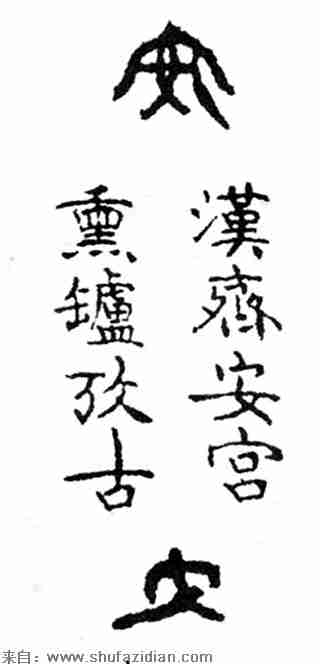 安
漢齊安宮
熏罏攷古
安
来自：www.shufazidian.com